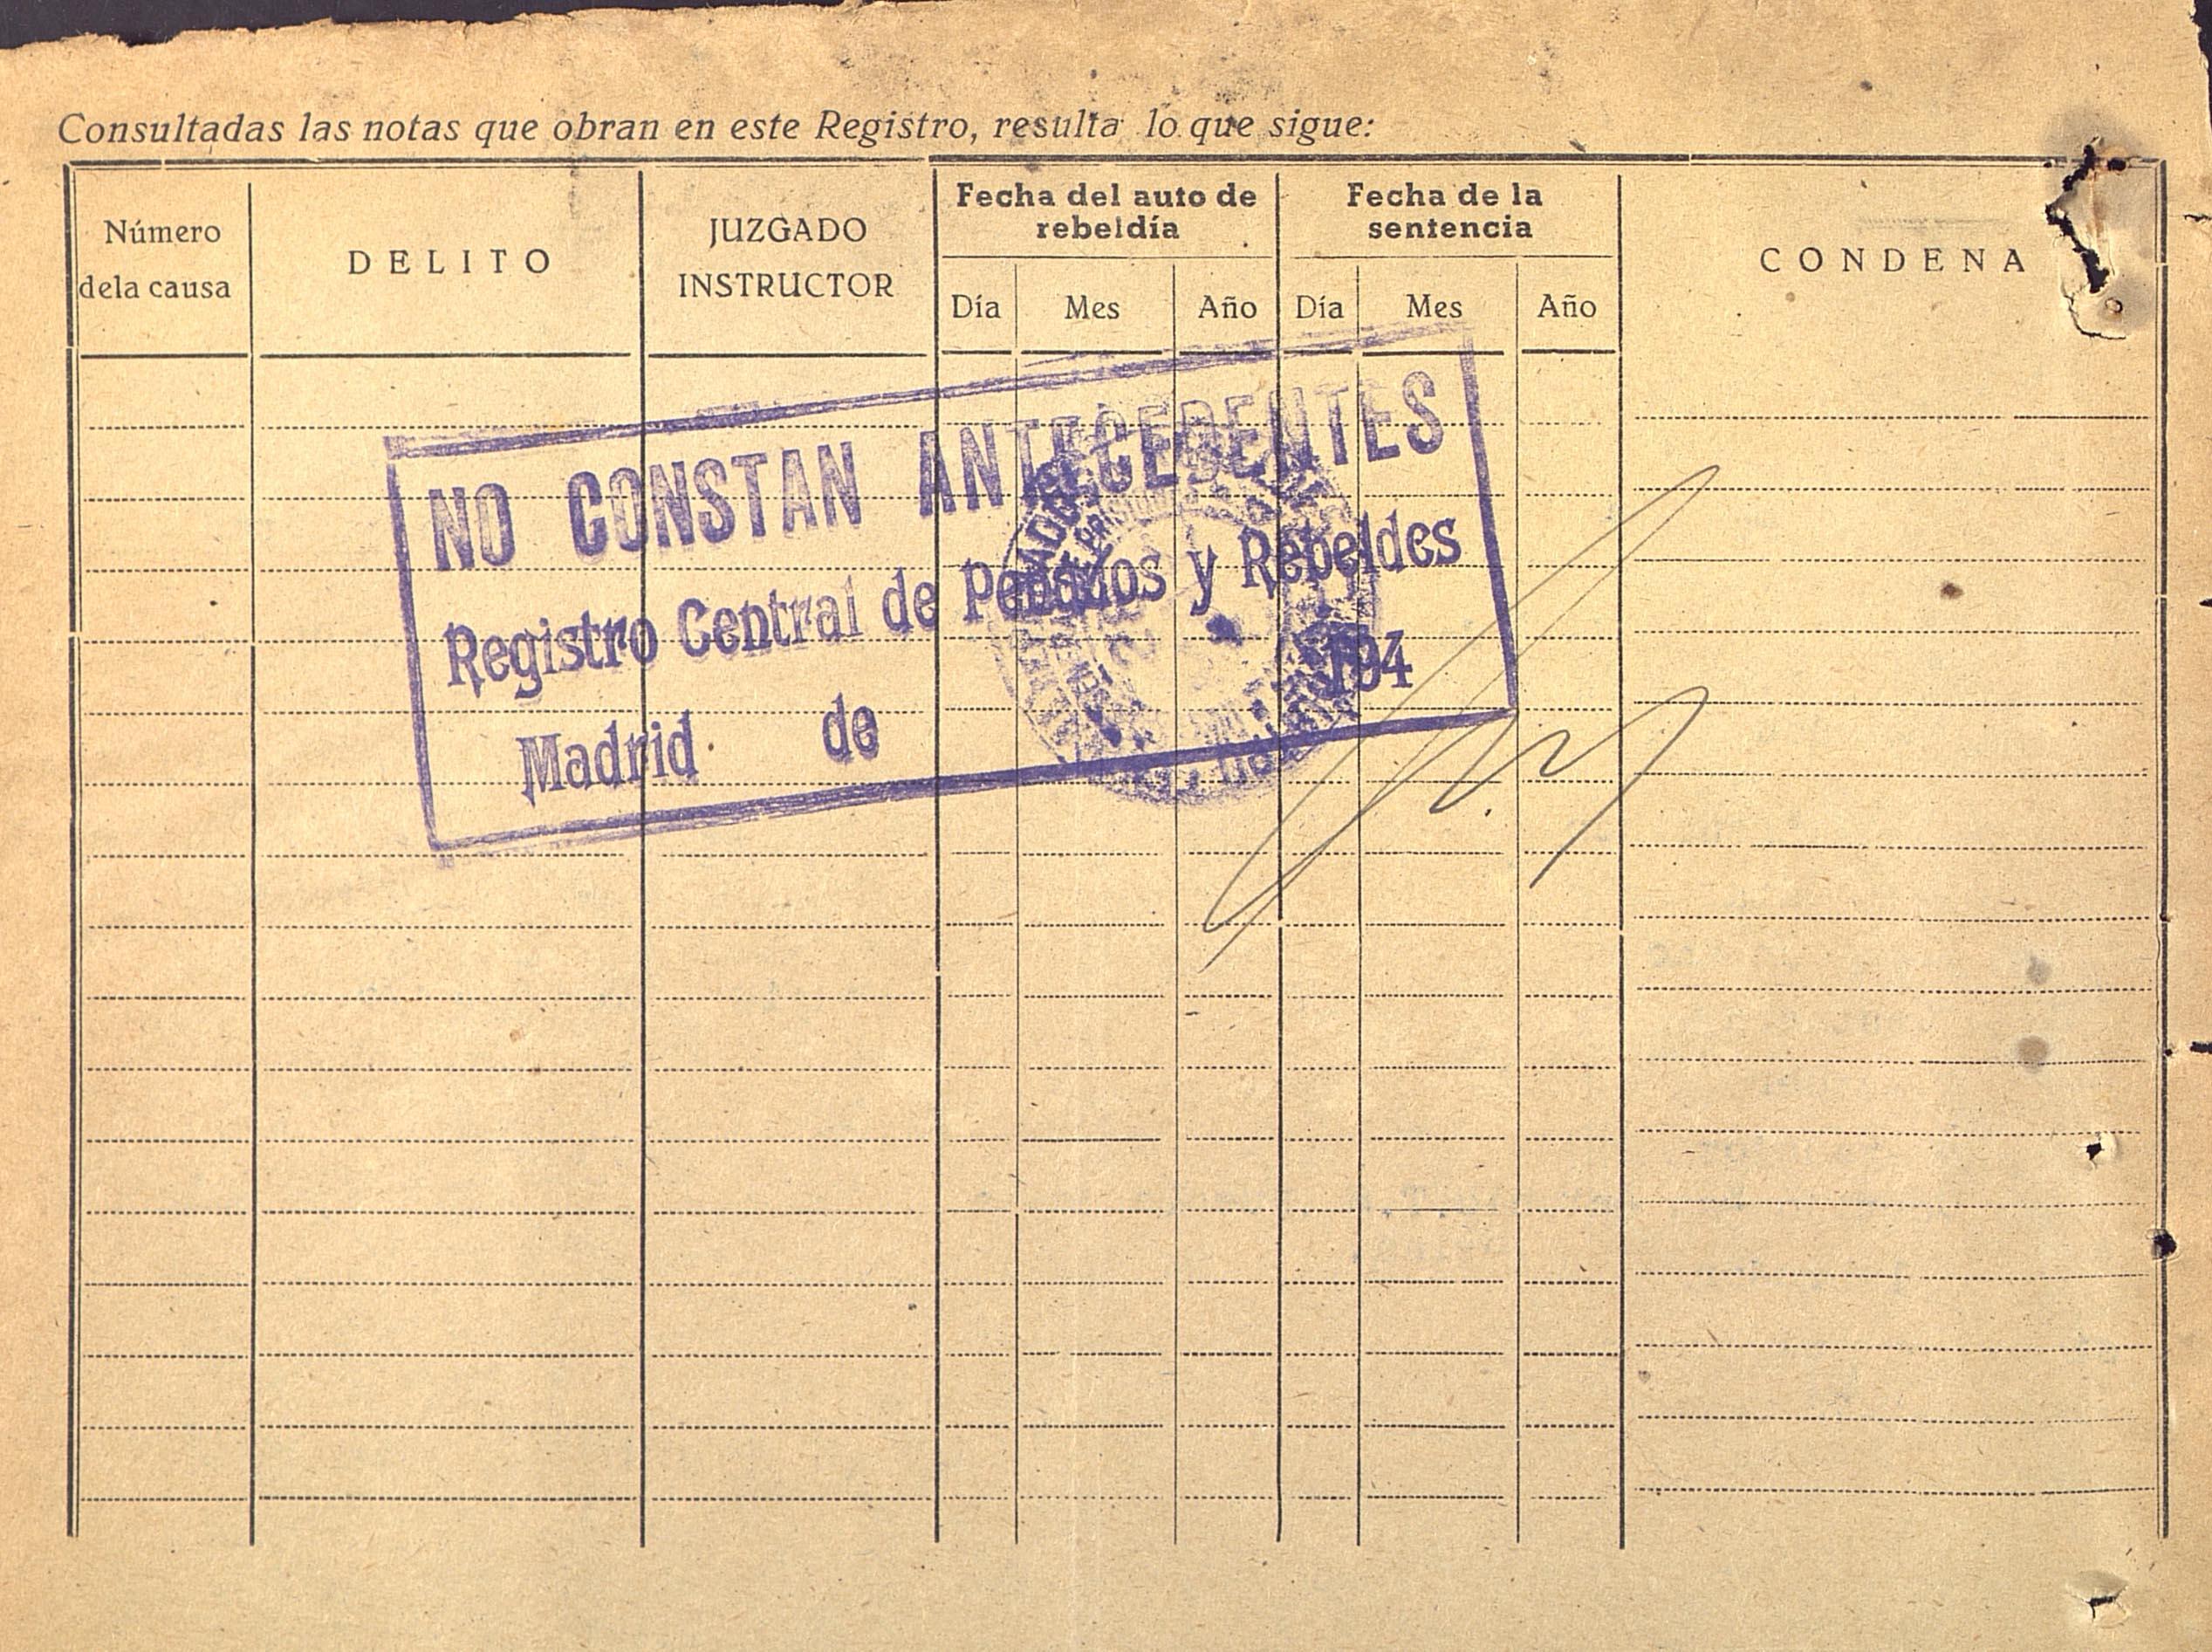 Consultadas las notas que obran en este Registro, resulta lo que sigue:
Número
dela causa
DELITO
JUZGADO
INSTRUCTOR
Fecha del auto de
rebeldía
Día Mes Año
Fecha de la
sentencia
Día Mes Año
CONDENA
NO CONSTAN ANTECEDENTES
Registro Central de Penados y Rebeldes
Madrid de 194